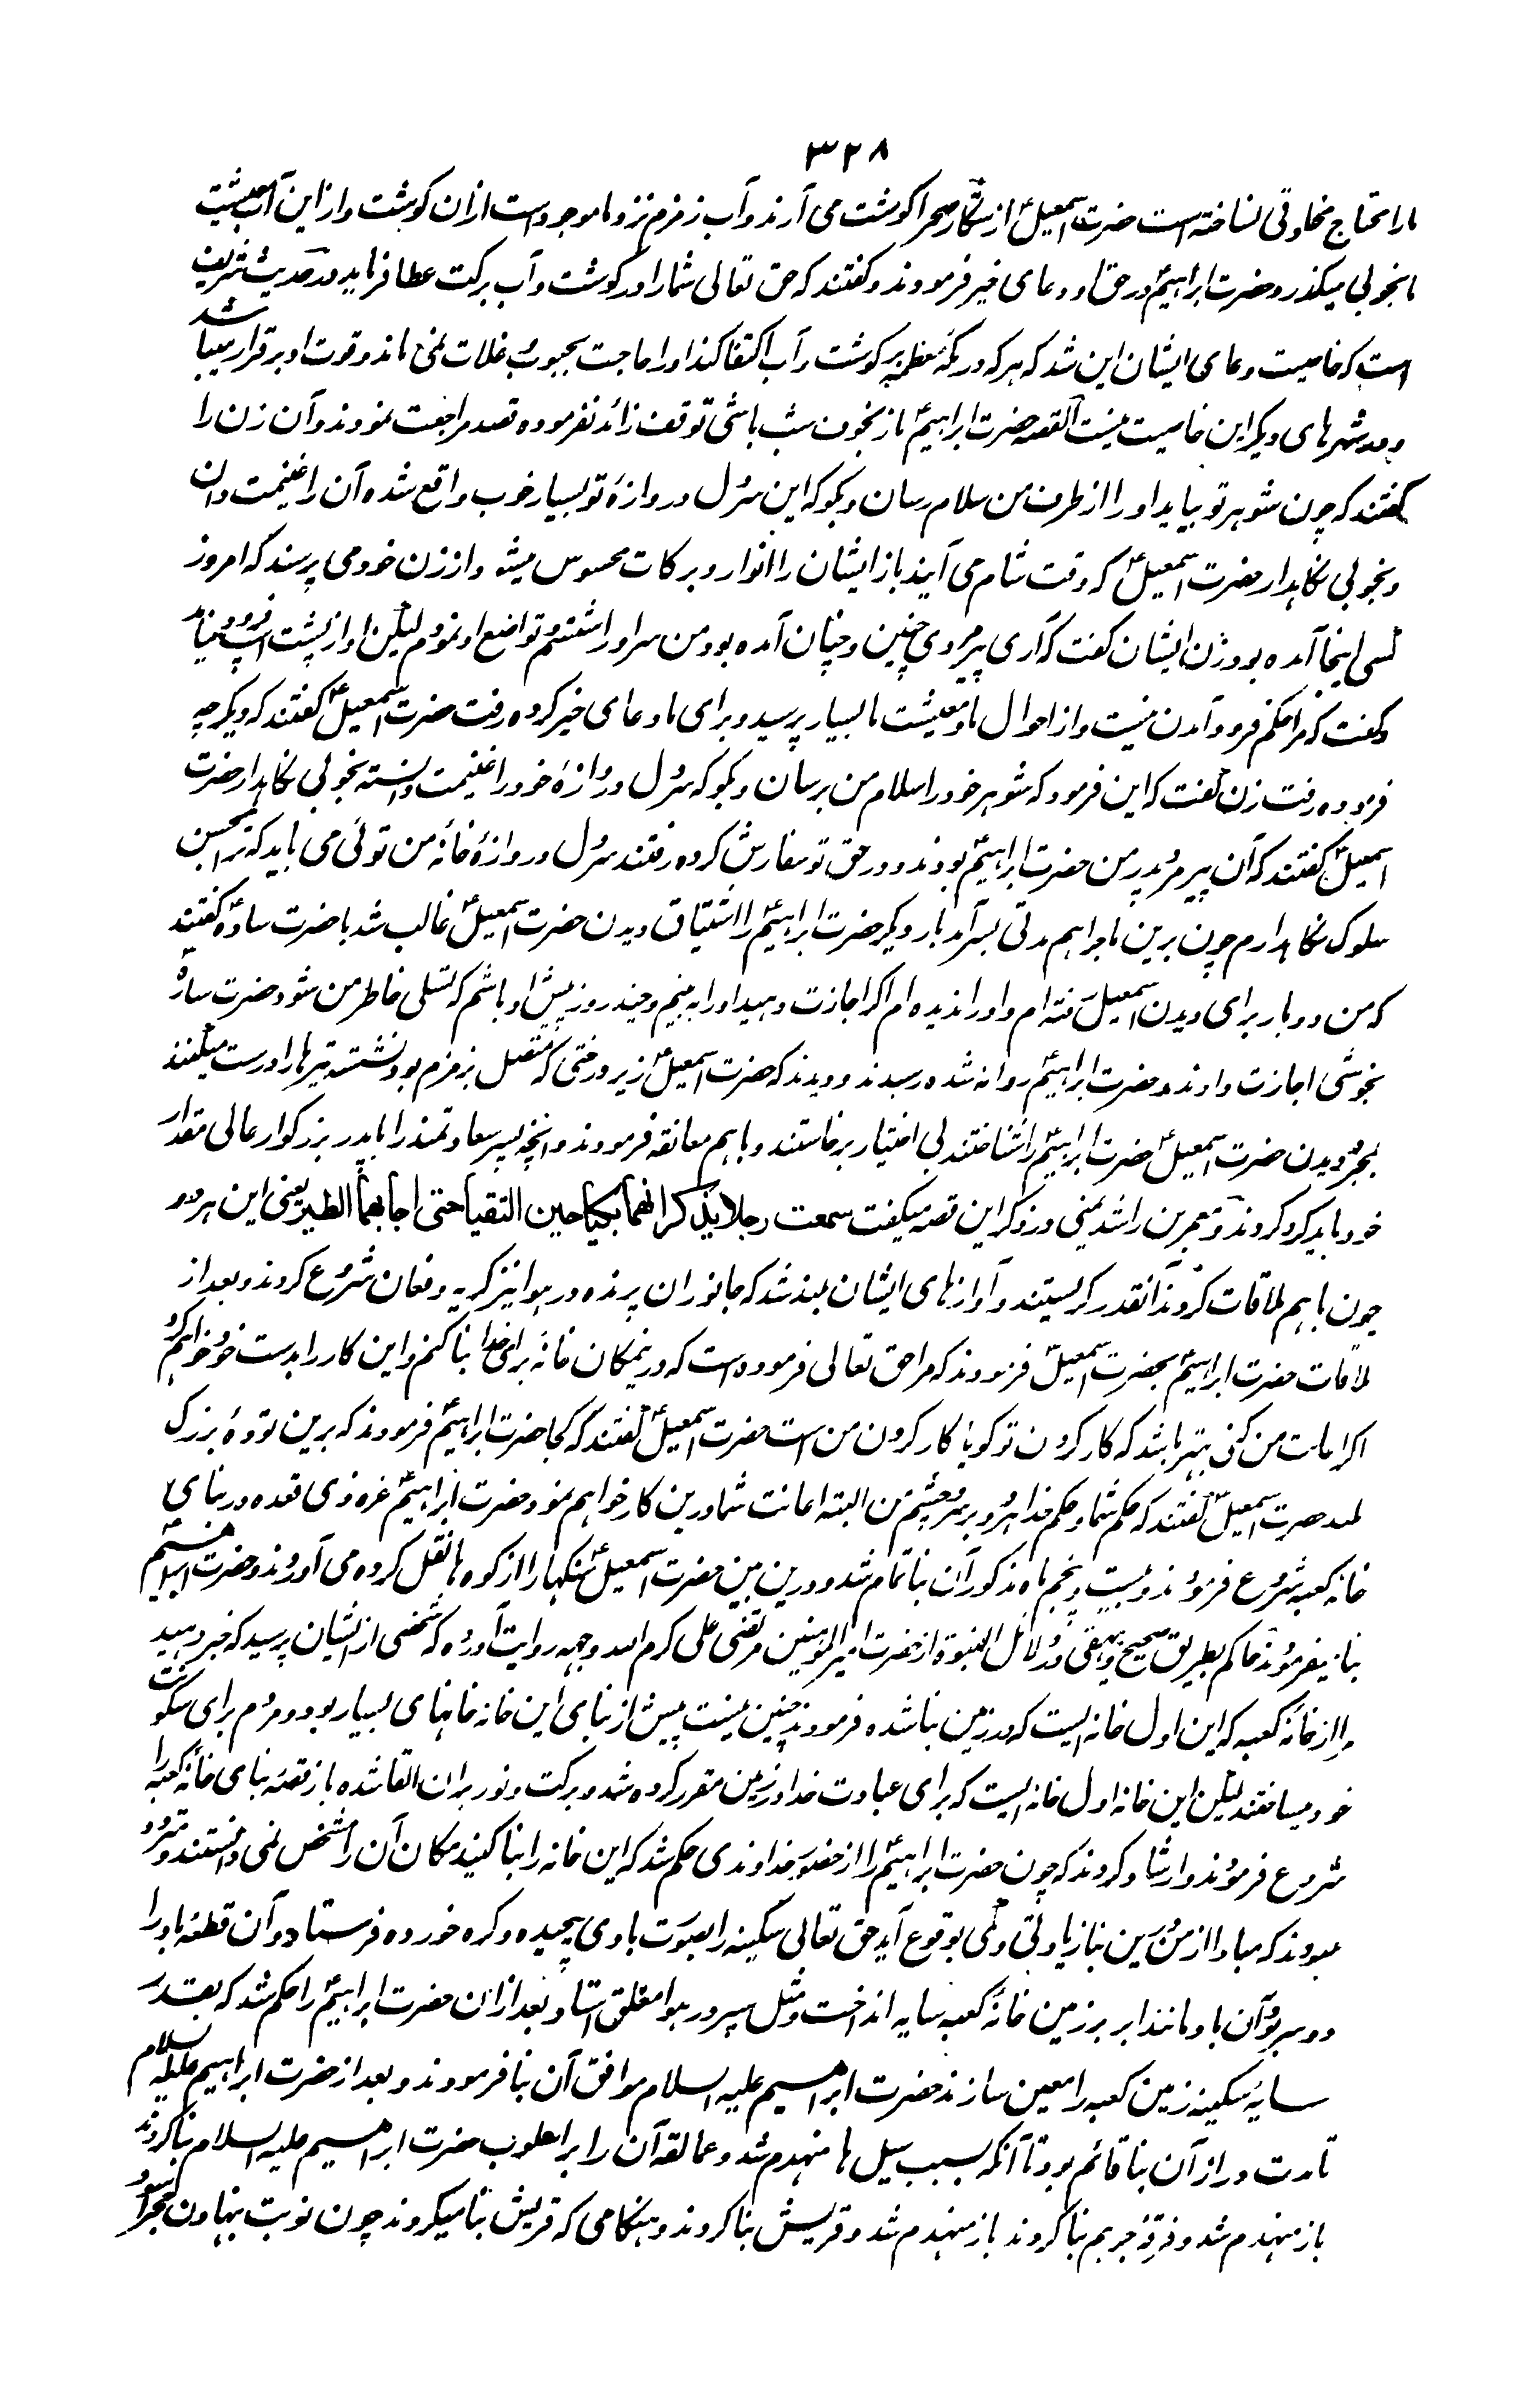 ۳۲۸
مارا محتاج مخلوقی نساخته است حضرت اسمعیلؑ از شکار صحرا گوشت می آرند و آب زمزم نزد ما موجود است ازان گوشت و ازاین آب معیشت
ما بخوبی میگذرد حضرت ابراهیمؑ در حق او دعای خیر فرمودند و گفتند که حق تعالی شما را در گوشت و آب برکت عطا فرماید در حدیث شریف
است که خاصیت دعای ایشان این شد که هر که در مکه معظمه بر گوشت و آب اکتفا کند او را حاجت بحبوب غلات نمی ماند و قوت او برقرار میباشد
و در شهرهای دیگر این خاصیت نیست القصه حضرت ابراهیمؑ باز بخوف شب باشی توقف زائد نفرموده قصد مراجعت نمودند و آن زن را
گفتند که چون شوهر تو بیاید او را از طرف من سلام رسان و بگو که این سردل دروازهٔ تو بسیار خوب واقع شده آن را غنیمت دان
و بخوبی نگاهدار حضرت اسمعیلؑ که وقت شام می آیند باز ایشان را انوار و برکات محسوس میشود از زن خود می پرسند که امروز
کسی اینجا آمده بود زن ایشان گفت که آری پیرمردی چنین و چنان آمده بود من سر او را شستم و تواضع او نمودم لیکن او از پشت اسپ فرود نیامد
و گفت که مرا حکم فرود آمدن نیست و از احوال ما و معیشت ما بسیار پرسید و برای ما دعای خیر کرده رفت حضرت اسمعیلؑ گفتند که دیگر چه
فرموده رفت زن گفت که این فرمود که شوهر خود را سلام من برسان و بگو که سردل دروازهٔ خود را غنیمت دانسته بخوبی نگاهدار حضرت
اسمعیلؑ گفتند که آن پیرمرد پدر من حضرت ابراهیمؑ بودند و در حق تو سفارش کرده رفتند سردل دروازهٔ خانهٔ من توئی می باید که ترا بحسن
سلوک نگاهدارم چون برین ماجرا هم مدتی بسر آمد بار دیگر حضرت ابراهیمؑ را اشتیاق دیدن حضرت اسمعیلؑ غالب شد با حضرت سارهؑ گفتند
که من دو بار برای دیدن اسمعیلؑ رفته ام و او را ندیده ام اگر اجازت دهید او را به بینم و چند روز پیش او باشم که تسلی خاطر من شود حضرت سارهؑ
بخوشی اجازت دادند و حضرت ابراهیمؑ روانه شده رسیدند و دیدند که حضرت اسمعیلؑ زیر درختی که متصل بزمزم بود نشسته تیرها را درست میکنند
بمجرد دیدن حضرت اسمعیلؑ حضرت ابراهیمؑ را شناختند بی اختیار برخاستند و باهم معانقه فرمودند و انچه پسر سعادتمند را با پدر بزرگوار عالی مقدار
خود باید کرد کردند و معمر بن راشد یمنی در ذکر این قصه میگفت سمعت رجلا یذکر انهما بکیا حین التقیا حتی اجابهما الطیر یعنی این هر دو
چون باهم ملاقات کردند آنقدر گریستند و آوازهای ایشان بلند شد که جانوران پرنده در هوا نیز گریه و فغان شروع کردند و بعد از
ملاقات حضرت ابراهیمؑ بحضرت اسمعیلؑ فرمودند که مرا حق تعالی فرموده است که درینمکان خانهٔ برای خدا بنا کنم و این کار را بدست خود خواهم کرد
اگر اعانت من کنی بهتر باشد که کار کردن تو گویا کار کردن من است حضرت اسمعیلؑ گفتند که کجا حضرت ابراهیمؑ فرمودند که برین تودهٔ بزرگ
بلند حضرت اسمعیلؑ گفتند که حکم شما و حکم خدا هر دو بر سر و چشم من البته اعانت شما درین کار خواهم نمود حضرت ابراهیمؑ غره ذی قعده در بنای
خانه کعبه شروع فرمودند و بیست و پنجم ماه مذکور آن بنا تمام شد و درین بین حضرت اسمعیلؑ سنگها را از کوه ها نقل کرده می آوردند و حضرت ابراهیمؑ
بنا میفرمودند حاکم بطریق صحیح و بیهقی در دلائل النبوة از حضرت امیر المؤمنین مرتضی علی کرم الله وجهه روایت آورده که شخصی از ایشان پرسید که خبر دهید
مرا از خانهٔ کعبه که این اول خانه ایست که در زمین بنا شده فرمودند چنین نیست پیش از بنای این خانه خانهای بسیار بود و مردم برای سکونت
خود میساختند لیکن این خانه اول خانه ایست که برای عبادت خدا در زمین مقرر کرده شد و برکت و نور بران القا شده باز قصهٔ بنای خانهٔ کعبه را
شروع فرمودند و ارشاد کردند که چون حضرت ابراهیمؑ را از حضور خداوندی حکم شد که این خانه را بنا کنید مکان آن را مشخص نمی دانستند و متردد
میبودند که مبادا از من درین بنا زیادتی و کمی بوقوع آید حق تعالی سکینه را بصورت بادی پیچیده و گره خورده فرستاد و آن قطعهٔ باد را
دو سر بود آن باد مانند ابر بر زمین خانهٔ کعبه سایه انداخت و مثل سپر در هوا معلق استاد بعد ازان حضرت ابراهیمؑ را حکم شد که بقدر
سایهٔ سکینه زمین کعبه را معین سازند حضرت ابراهیم علیه السلام موافق آن بنا فرمودند و بعد از حضرت ابراهیم علیه السلام
تا مدت دراز آن بنا قائم بود تا آنکه بسبب سیل ها منهدم شد و عمالقه آن را بر اسلوب حضرت ابراهیم علیه السلام بنا کردند
باز منهدم شد و فرقهٔ جرهم بنا کردند باز منهدم شد و قریش بنا کردند و هنگامی که قریش بنا میکردند چون نوبت بنهادن حجر اسود